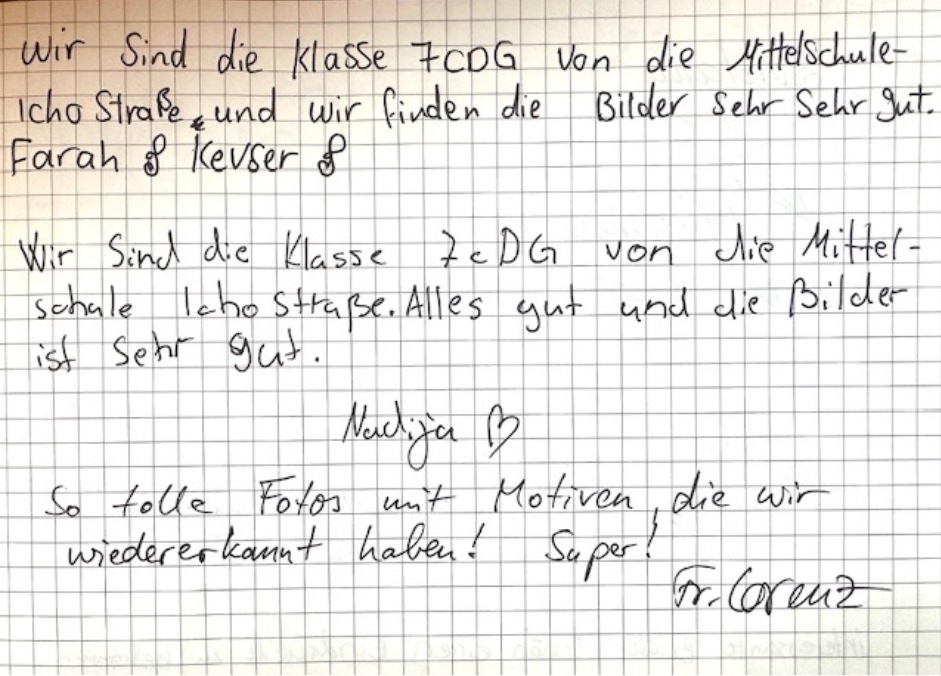 Wir Sind die Klasse 7CDG von die Mittelschule-
Icho Straße, und wir finden die Bilder Sehr Sehr gut.
Farah & Kevser &
Wir Sind die Klasse 7cDG von die Mittel-
schule Icho Straße. Alles gut und die Bilder
ist Sehr gut.
Nadija ♡
So tolle Fotos mit Motiven, die wir
wiedererkannt haben! Super!
Fr. Lorenz